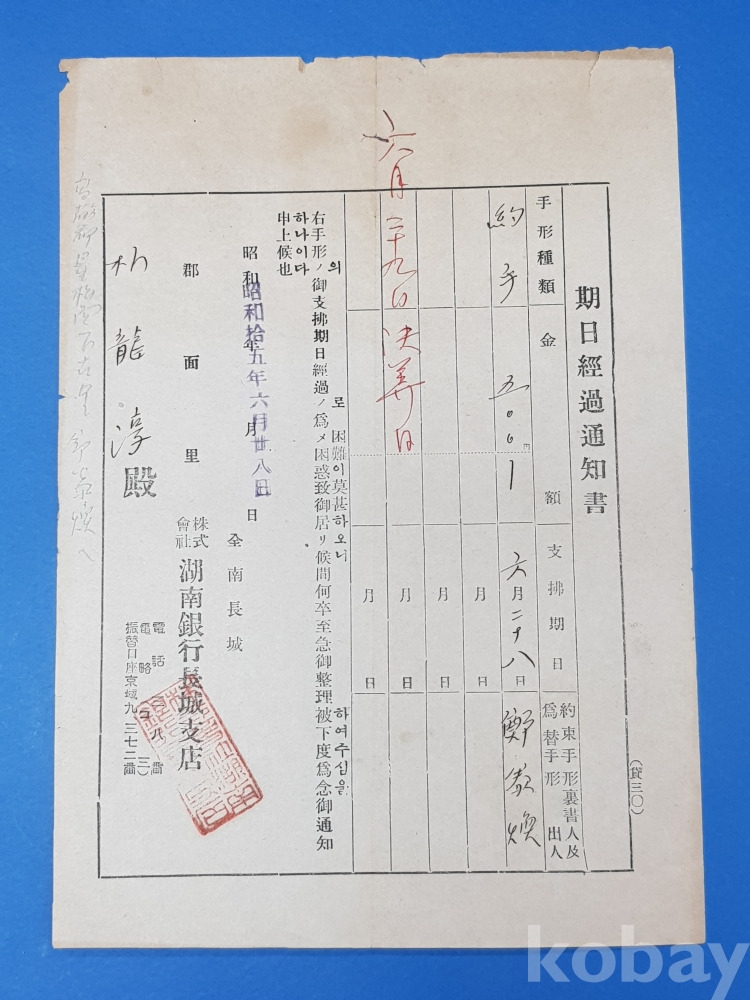 (貸三〇)
期日經過通知書
手形種類
金額
支拂期日
約束手形裏書人及
爲替手形出人
約手
五〇〇
円
六月二十八日
鄭
煥
月 日
月 日
月 日
月 日
六月二十九日決算日
의 로 困難이莫甚하오니 하여주심을
右手形ノ御支拂期日經過ノ爲メ困惑致御居リ候間何卒至急御整理被下度爲念御通知
하나이다
申上候也
昭和 年 月 日
昭和拾五年六月廿八日
全南長城
株式會社 湖南銀行長城支店
電話 八番
電略(コ 三)
振替口座京城九三七二番
郡面里
朴龍淳殿